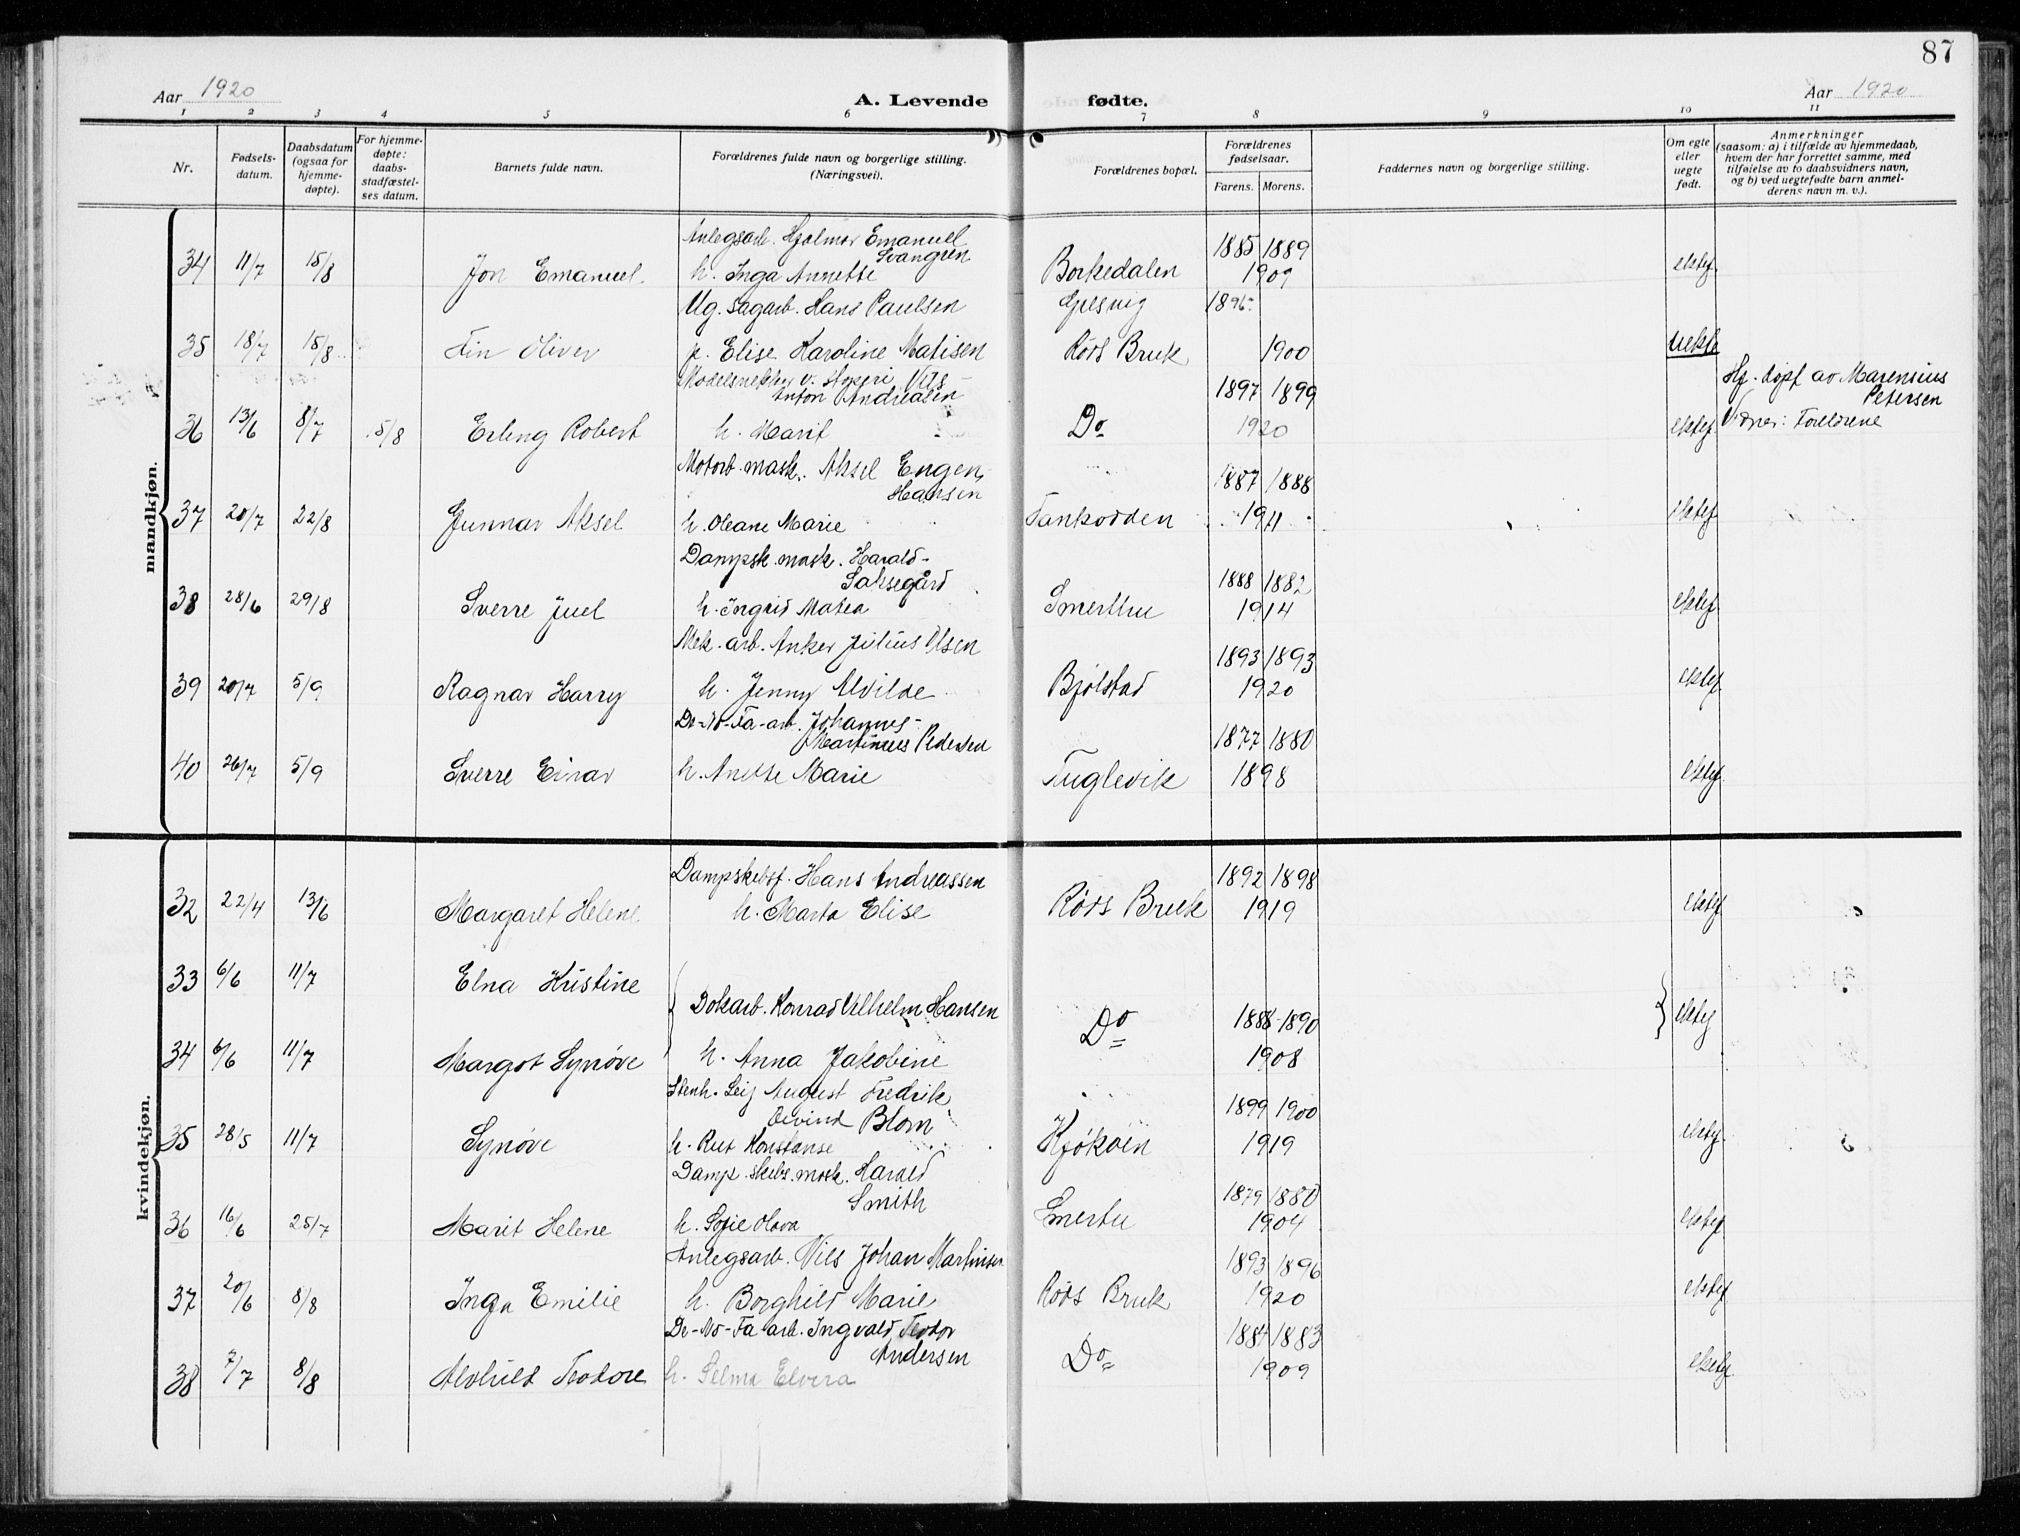 87
Aar 1920
A. Levende fødte.
Aar 1920
1 2 3 4 5 6 7 8 9 10 11
Nr.
Fødsels-
datum.
Daabsdatum
(ogsaa for
hjemme-
døpte).
For hjemme-
døpte:
daabs-
stadfæstel-
ses datum.
Barnets fulde navn.
Forældrenes fulde navn og borgerlige stilling.
(Næringsvei).
Forældrenes bopæl.
Forældrenes
fødselsaar.
Farens. Morens.
Faddernes navn og borgerlige stilling.
Om egte
eller
uegte
født.
Anmerkninger
(saasom: a) i tilfælde av hjemmedaab,
hvem der har forrettet samme, med
tilføielse av to daabsvidners navn,
og b) ved uegtefødte barn anmel-
derens navn m. v.).
mandkjøn.
Anlegsarb. Hjalmar Emanuel
Svangren
1885 1889
34 11/7 15/8 Jon Emanuel h. Inga Annette Borkedalen 1909 ektef
Ug. sagarb. Hans Paulsen 1896
35 18/7 15/8 Fin Oliver p. Elise Karoline Matisen Røds Bruk 1900 uekte
Modelsnekker v. støperi Nils
Anton Andreasen
1897 1899
Hj. døpt av Marensius
Petersen
36 13/6 8/7 5/8 Erling Robert h. Marit Do 1920 ektef Vidner: Foreldrene
Motorb. mask. Aksel Engen
Hansen
1887 1888
37 20/7 22/8 Gunnar Aksel h. Oleane Marie 1911 ektef
Dampsk. mask. Harald
Saksegård
1888 1882
38 28/6 29/8 Sverre Juel h. Ingrid Matea Smerthu 1914 ektef
Mek. arb. Anker Julius Olsen 1893 1893
39 20/7 5/9 Ragnar Harry h. Jenny Alvilde Bjølstad 1920 ektef
De-No-Fa-arb. Johannes
Martinius Pedersen
1877 1880
40 26/7 5/9 Sverre Einar h. Anette Marie Fuglevik 1898 ektef
kvindekjøn.
Dampskibsf. Hans Andreassen 1892 1898
32 22/4 13/6 Margaret Helene h. Marta Elise Røds Bruk 1919 ektef
33 6/6 11/7 Elna Kristine
Dokarb. Konrad Vilhelm Hansen Do 1888 1890 ektef
34 6/6 11/7 Margot Synøve h. Anna Jakobine 1908
Stenh. Leif August Fredrik
Øivind Blom
1899 1900
35 28/5 11/7 Synøve h. Rut Konstanse Kjøkøen 1919 ektef
Damp.skibs.mask. Harald
Smith
1879 1880
36 16/6 25/7 Marit Helene h. Sofie Olava Smertu 1904 ektef
Anlegsarb. Nils Johan Martinsen 1893 1896
37 20/6 8/8 Inga Emilie h. Borghild Marie Røds Bruk 1920 ektef
De-No-Fa arb. Ingvald Teodor
Andersen
1884 1883
38 7/7 8/8 Alvhild Teodore h. Selma Elvera Do 1909 ektef